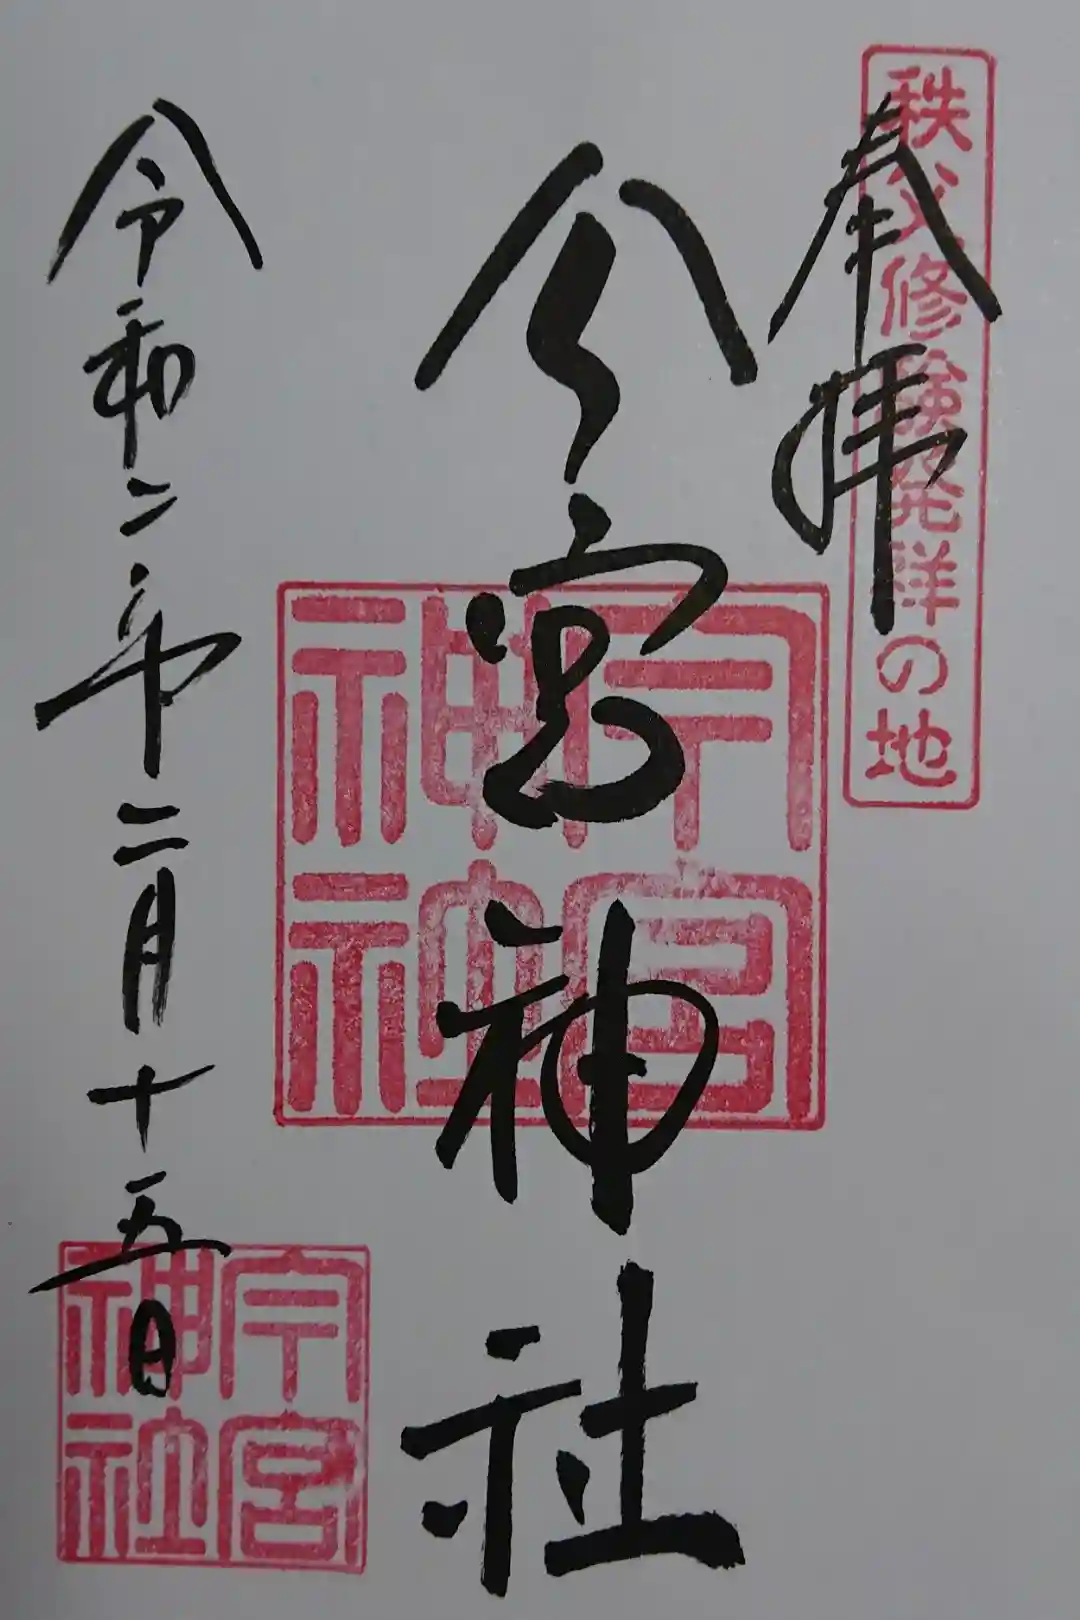 秩父修験発祥の地
奉拝
今宮神社
今宮神社
令和二年二月十五日
今宮神社